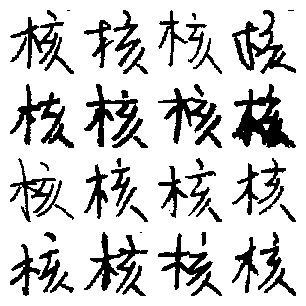 核核核核
核核核核
核核核核
核核核核